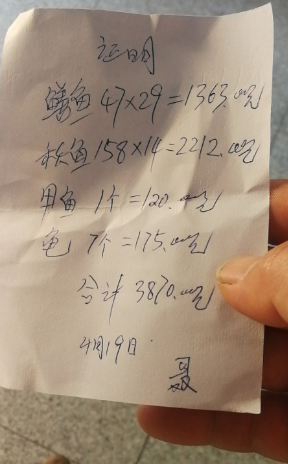 证明
鳝鱼 47×29=1363.00元
秋鱼 158×14=2212.00元
甲鱼 1个=120.00元
龟 7个=175.00元
合计 3870.00元
4月19日
聂